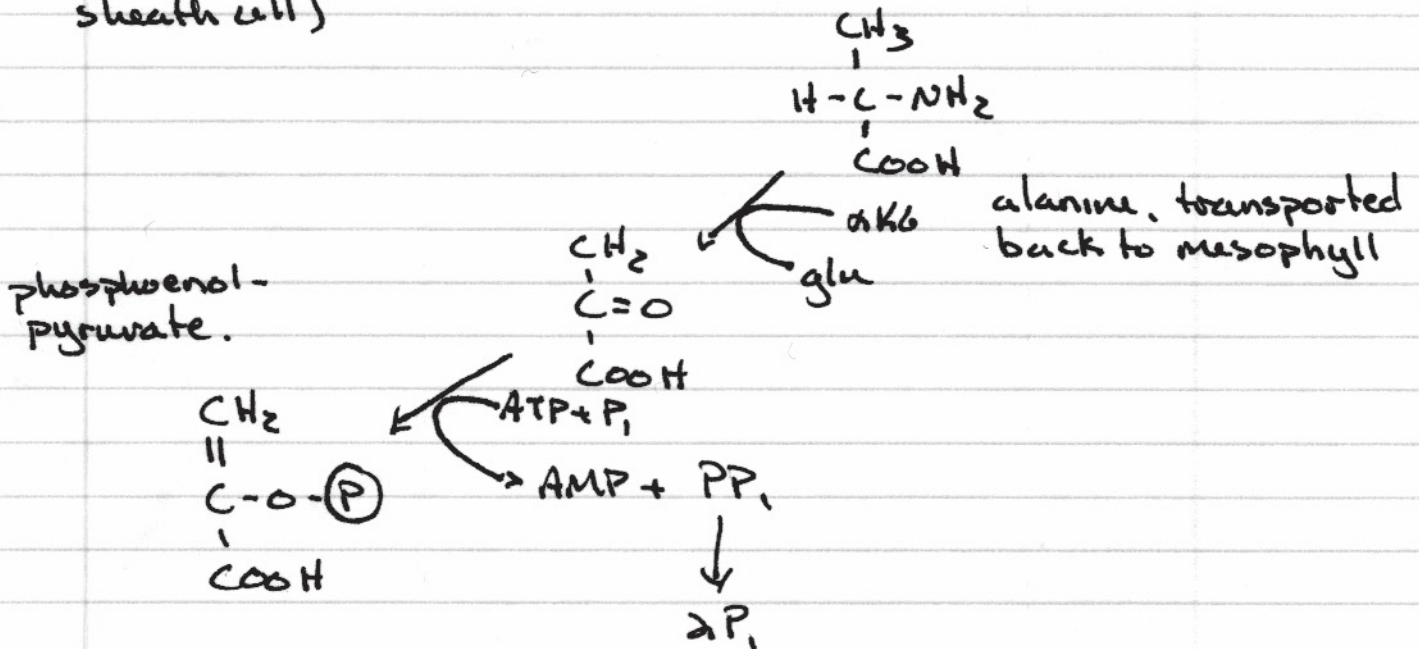 sheath cell)
CH3
H-C-NH2
COOH
alanine, transported
back to mesophyll
αKG
glu
CH2
C=O
COOH
phosphoenol-
pyruvate.
ATP+Pi
AMP + PPi
2Pi
CH2
C-O-P
COOH